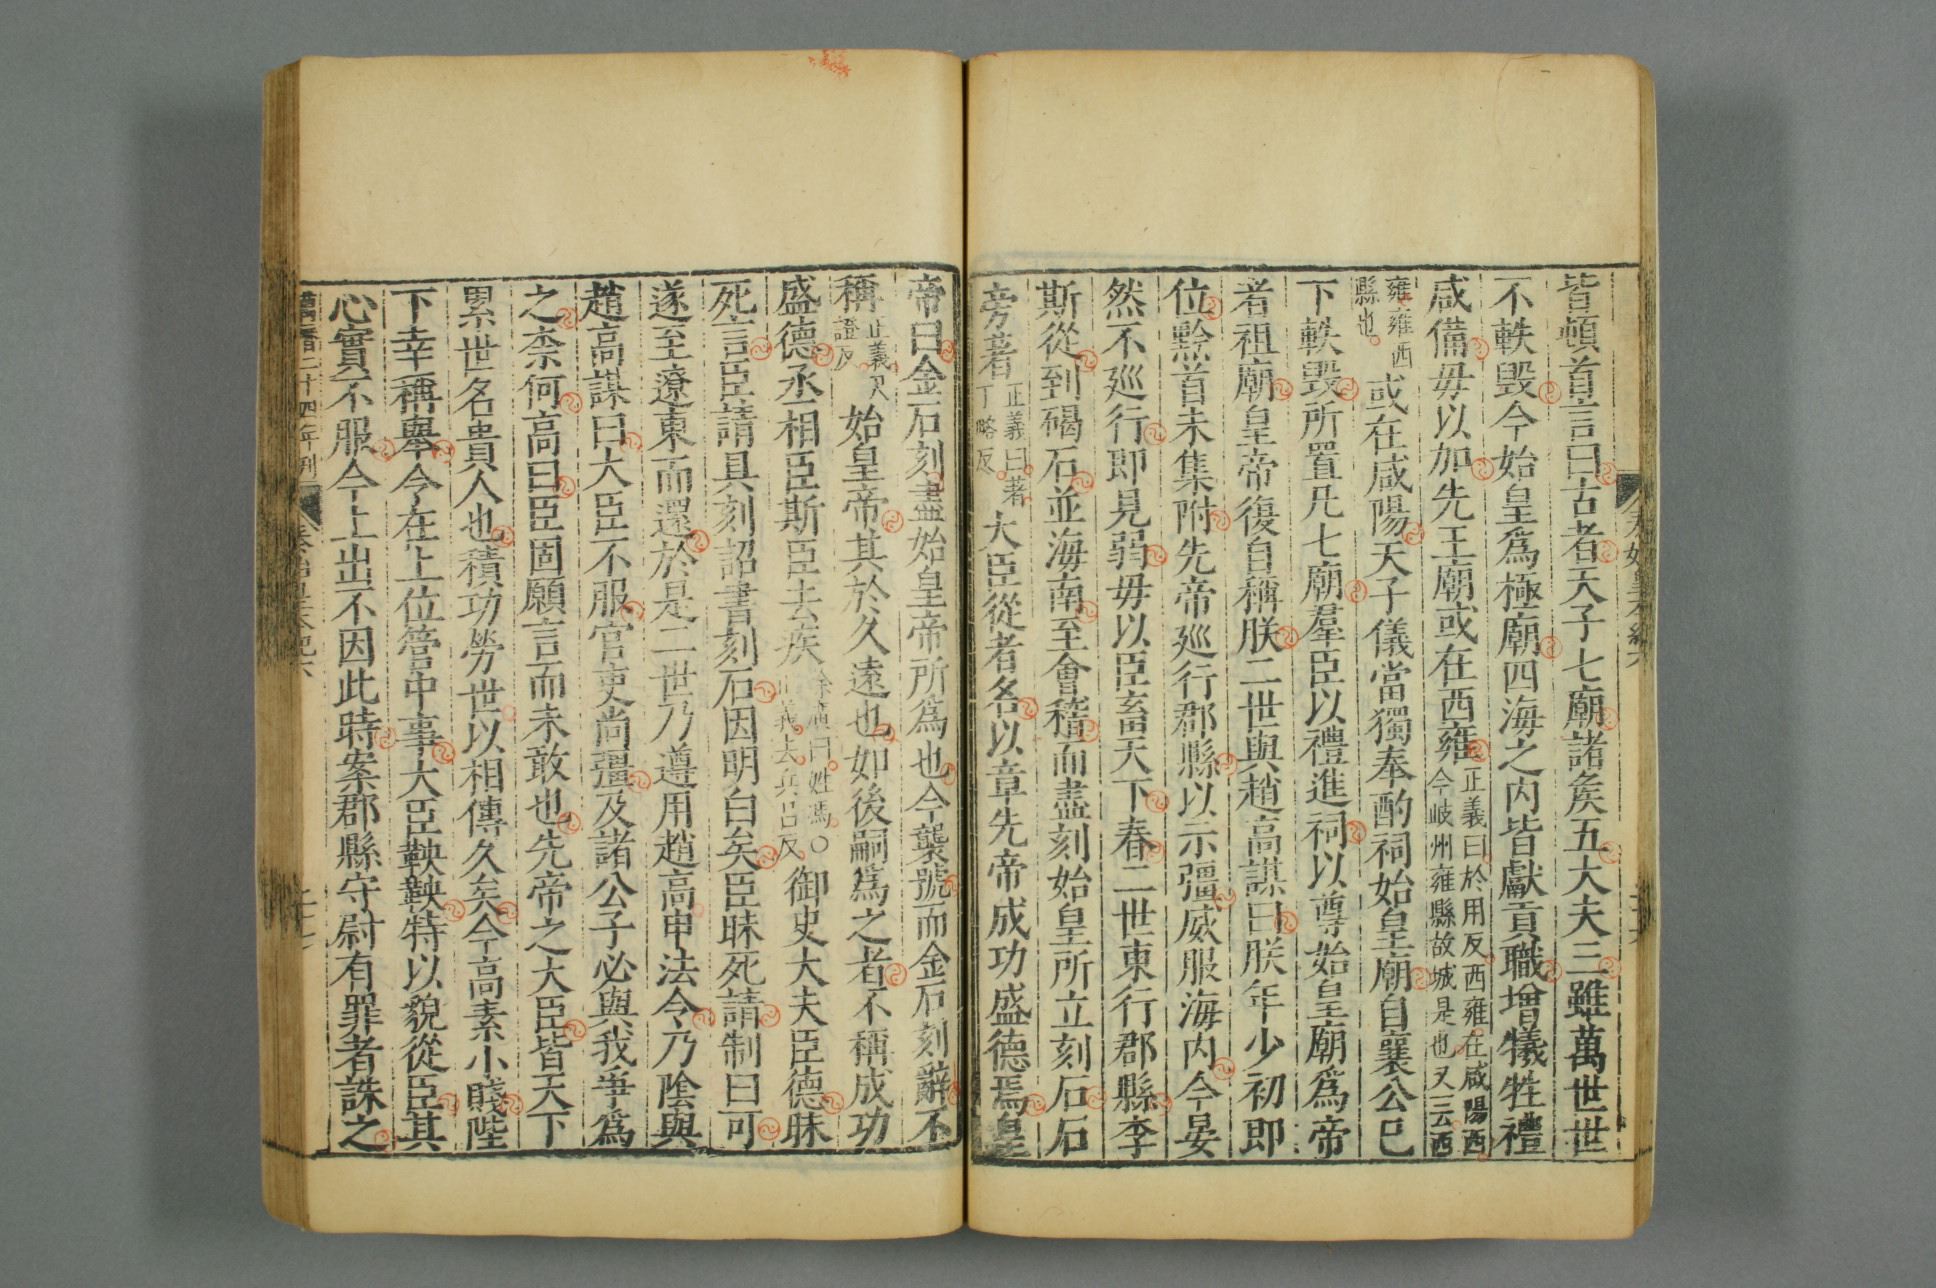 皆頓首言曰古者天子七廟諸矦五大夫三雖萬世世
不軼毀今始皇爲極廟四海之内皆獻貢職增犧牲禮
咸備毋以加先王廟或在西雍正義曰於用反西雍在咸陽西
今岐州雍縣故城是也又云西
雍雍西
縣也
或在咸陽天子儀當獨奉酌祠始皇廟自襄公已
下軼毀所置凡七廟羣臣以禮進祠以尊始皇廟爲帝
者祖廟皇帝復自稱朕二世與趙高謀曰朕年少初即
位黔首未集附先帝廵行郡縣以示彊威服海内今晏
然不廵行即見弱毋以臣畜天下春二世東行郡縣李
斯從到碣石並海南至會稽而盡刻始皇所立刻石石
旁著正義曰著
丁略反
大臣從者名以章先帝成功盛德焉皇
帝曰金石刻盡始皇帝所爲也今襲號而金石刻辭不
稱正義尺
證反
始皇帝其於久遠也如後嗣爲之者不稱成功
盛德丞相臣斯臣去疾徐廣曰姓馮○
義去丘吕反
御史大夫臣德昧
死言臣請具刻詔書刻石因明白矣臣昧死請制曰可
遂至遼東而還於是二世乃遵用趙高申法令乃陰與
趙高謀曰大臣不服官吏尚彊及諸公子必與我爭爲
之柰何高曰臣固願言而未敢也先帝之大臣皆天下
累世名貴人也積功勞世以相傳久矣今高素小賤陛
下幸稱舉令在上位管中事大臣鞅鞅特以貌從臣其
心實不服今上出不因此時案郡縣守尉有罪者誅之
二十四年刊